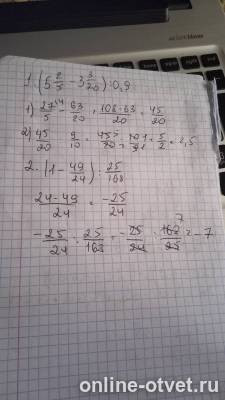 1. (5 2/5 - 3 3/20) : 0,9
1) 27/5 - 63/20 = 108-63/20 = 45/20
2) 45/20 : 9/10 = 5/2 = 2,5
2. (1 - 49/24) : 25/168
24-49/24 = -25/24
-25/24 : 25/168 = -25/24 · 168/25 = -7
online-otvet.ru